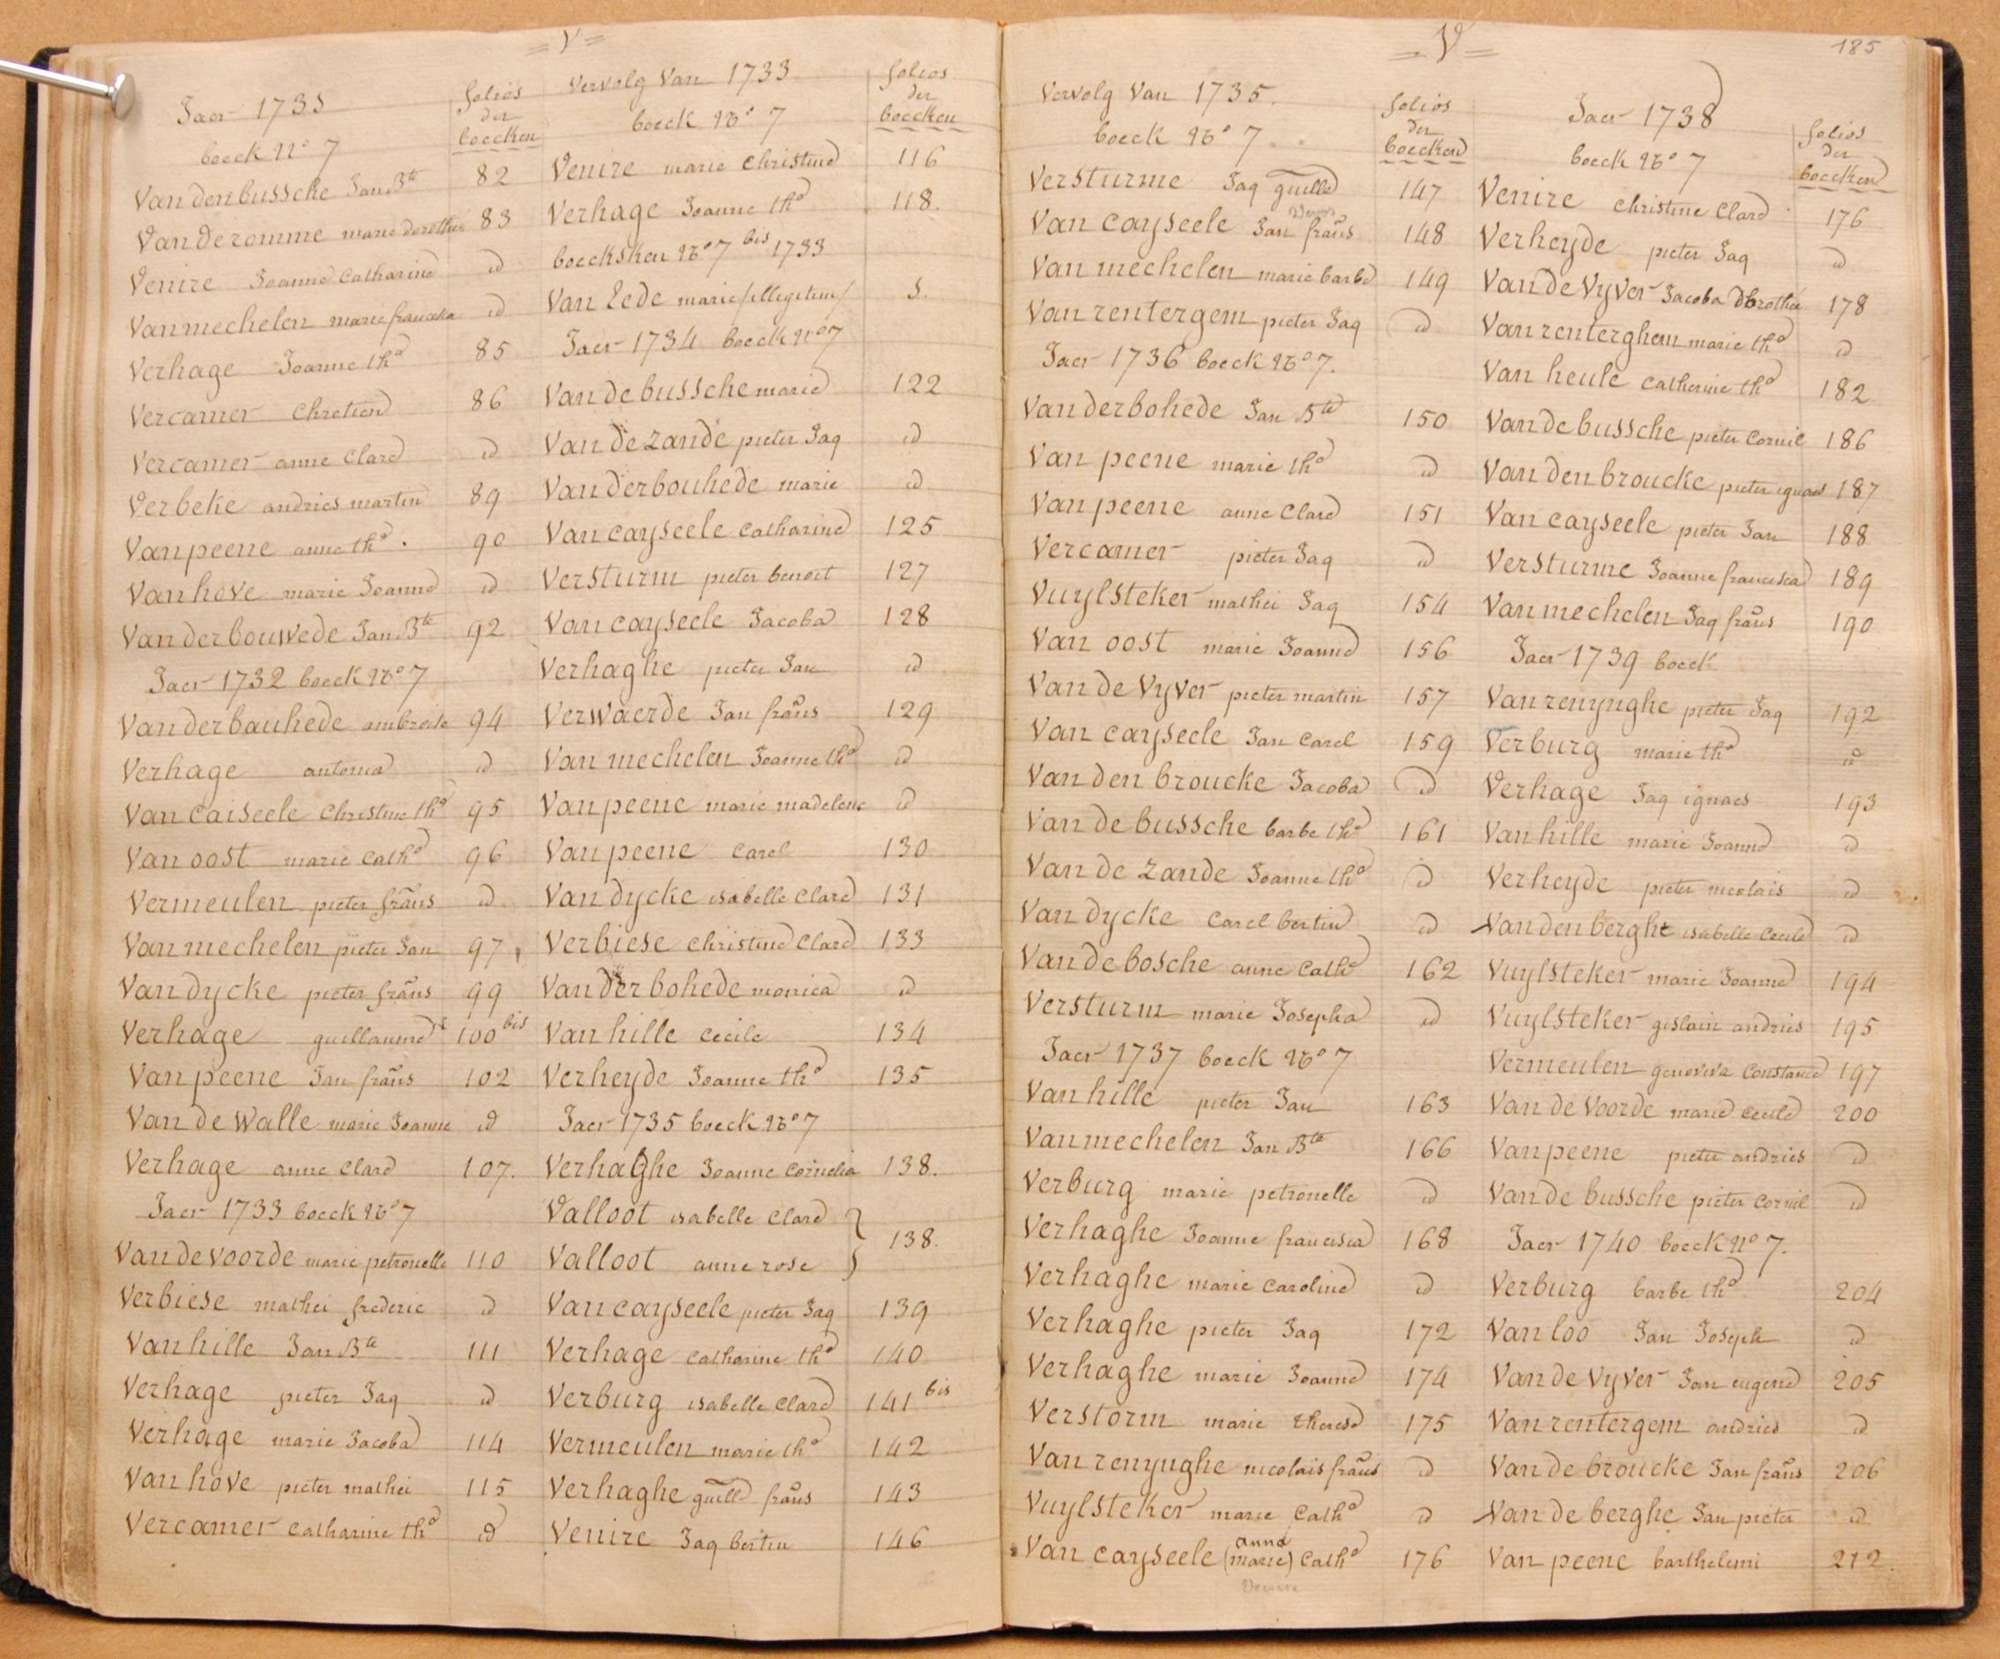 = V =
Jaer 1731
folios
der
boecken
boeck No 7
Vandenbussche Jan Bte 82
Vanderomme marie dorothee 83
Venire Joanne Catharine id
Vanmechelen marie francoise id
Verhage Joanne the 85
Vercamer Chretien 86
Vercamer anne Clare id
Verbeke andries martin 89
Vanpeene anne the. 90
Vanhove marie Joanne id
Vanderbouwede Jan Bte 92
Jaer 1732 boeck No 7
Vanderbauhede ambroise 94
Verhage antonia id
Van Caiseele Christine the 95
Van oost marie Cathe 96
Vermeulen pieter frans id
Vanmechelen pieter Jan 97
Vandycke pieter frans 99
Verhage guillaume 100 bis
Vanpeene Jan frans 102
Van de Walle marie Joanne id
Verhage anne Clare 107.
Jaer 1733 boeck No 7
Vandevoorde marie petronelle 110
Verbiese mathei frederic id
Vanhille Jan Bte 111
Verhage pieter Jaq id
Verhage marie Jacoba 114
Vanhove pieter mathei 115
Vercamer Catharine the id
Vervolg Van 1733
folios
der
boecken
boeck No 7
Venire marie Christine 116
Verhage Joanne the 118.
boecksken No 7 bis 1733
Van Lede marie /illegitem/ 5.
Jaer 1734 boeck No 7
Vandebussche marie 122
Van de Zande pieter Jaq id
Vanderbouhede marie id
Van Cayseele Catharine 125
Versturm pieter benoit 127
Van cayseele Jacoba 128
Verhaghe pieter Jan id
Verwaerde Jan frans 129
Van mechelen Joanne the id
Vanpeene marie madelene id
Vanpeene Carel 130
Vandycke isabelle Clare 131
Verbiese Christine Clare 133
Vanderbohede monica id
Vanhille Cecile 134
Verheyde Joanne the 135
Jaer 1735 boeck No 7
Verhaghe Joanne Cornelia 138.
Valloot isabelle Clare }
Valloot anne rose } 138.
Van cayseele pieter Jaq 139
Verhage Catharine the 140
Verburg isabelle Clare 141 bis
Vermeulen marie the 142
Verhaghe guille frans 143
Venire Jaq bertin 146
= V =
185
Vervolg Van 1735.
folios
der
boecken
boeck No 7
Versturme Jaq guille 147
Van Cayseele Jan frans 148
Van mechelen marie barbe 149
Vanrentergem pieter Jaq id
Jaer 1736 boeck No 7.
Vanderbohede Jan Bte 150
Van peene marie the id
Vanpeene anne Clare 151
Vercamer pieter Jaq id
Vuylsteker mathei Jaq 154
Van oost marie Joanne 156
Van de Vyver pieter martin 157
Van cayseele Jan Carel 159
Van den broucke Jacoba id
Van de bussche barbe the 161
Van de Zande Joanne the id
Van dycke Carel bertin id
Van de bosche anne Cathe 162
Versturm marie Josepha id
Jaer 1737 boeck No 7
Vanhille pieter Jan 163
Vanmechelen Jan Bte 166
Verburg marie petronelle id
Verhaghe Joanne francisca 168
Verhaghe marie Caroline id
Verhaghe pieter Jaq 172
Verhaghe marie Joanne 174
Verstorm marie therese 175
Van renynghe nicolais frans id
Vuylsteker marie Cathe id
anne
Van cayseele (marie) Cathe 176
Jaer 1738
folios
der
boecken
boeck No 7
Venire Christine Clare 176
Verheyde pieter Jaq id
Van de Vyver Jacoba dorothee 178
Vanrenterghem marie the id
Van heule Catherine the 182
Van de bussche pieter Cornil 186
Van den broucke pieter ignaes 187
Van cayseele pieter Jan 188
Versturme Joanne francisca 189
Van mechelen Jaq frans 190
Jaer 1739 boeck
Van renynghe pieter Jaq 192
Verburg marie the id
Verhage Jaq ignaes 193
Van hille marie Joanne id
Verheyde pieter nicolais id
Van den berghe isabelle Cecile id
Vuylsteker marie Joanne 194
Vuylsteker gislain andries 195
Vermeulen genoveva Constance 197
Van de Voorde marie Cecile 200
Vanpeene pieter andries id
Van de bussche pieter Cornil id
Jaer 1740 boeck No 7.
Verburg barbe the 204
Van loo Jan Joseph id
Van de Vyver Jan eugene 205
Vanrentergem andries id
Van de broucke Jan frans 206
Van de berghe Jan pieter id
Van peene barthelemi 212.